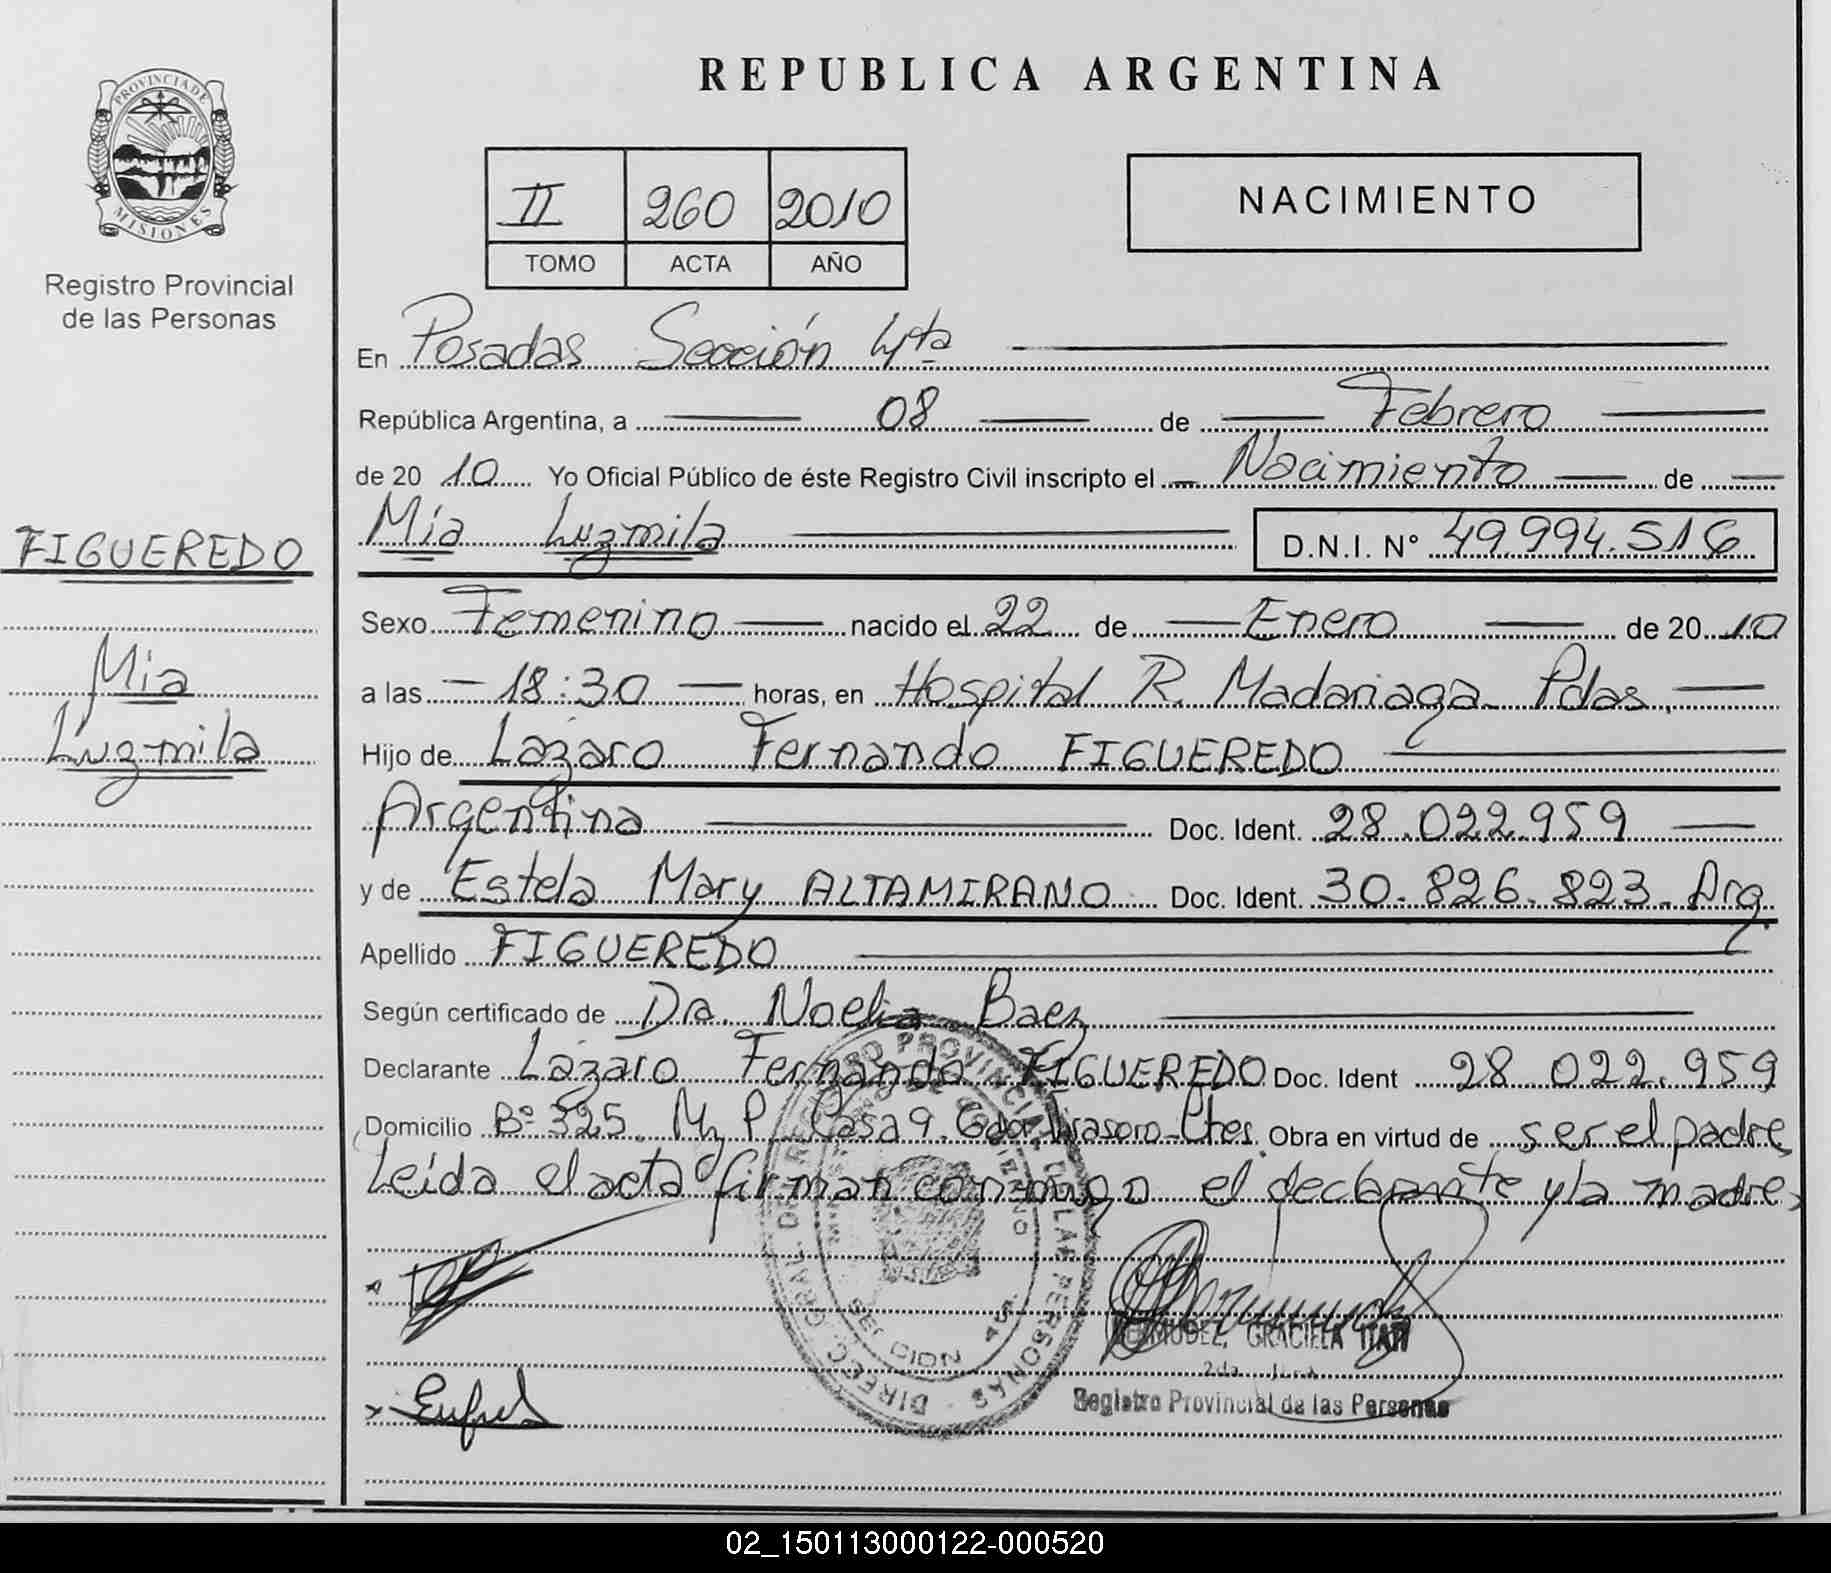 PROVINCIA DE
MISIONES
Registro Provincial
de las Personas
FIGUEREDO
Mía
Luzmila
REPUBLICA ARGENTINA
II 260 2010
TOMO ACTA AÑO
NACIMIENTO
En Posadas Sección 4ta
República Argentina, a 08 de Febrero
de 20 10 Yo Oficial Público de éste Registro Civil inscripto el Nacimiento de
Mía Luzmila D.N.I. N° 49.994.516
Sexo Femenino nacido el 22 de Enero de 20 10
a las 18:30 horas, en Hospital R. Madariaga Pdas.
Hijo de Lázaro Fernando FIGUEREDO
Argentina Doc. Ident. 28.022.959
y de Estela Mary ALTAMIRANO Doc. Ident. 30.826.823. Arg.
Apellido FIGUEREDO
Según certificado de Dra. Noelia Baez
Declarante Lázaro Fernando FIGUEREDO Doc. Ident 28.022.959
Domicilio Bº 325. Mz P Casa 9. Gdor. Virasoro-Ctes. Obra en virtud de ser el padre
Leída el acta firman conmigo el declarante y la madre,
BERMUDEZ, GRACIELA ITATI
Registro Provincial de las Personas
02_150113000122-000520